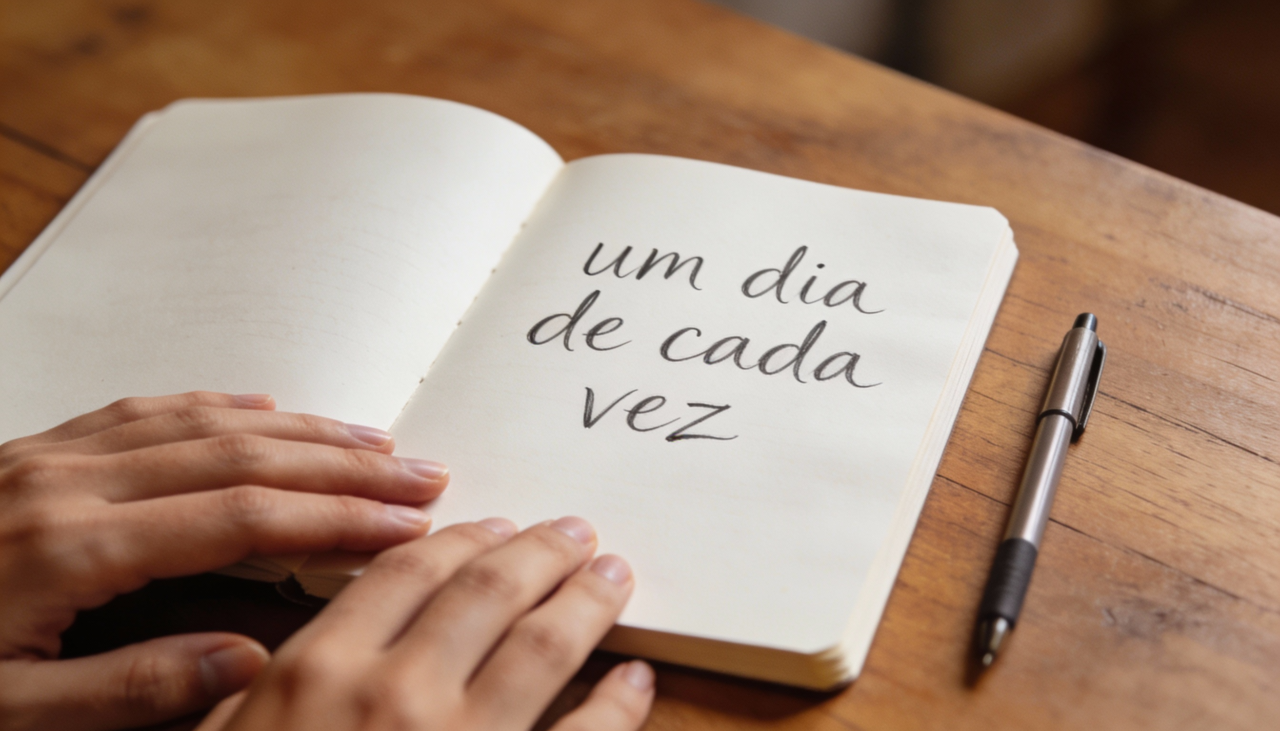 um dia
de cada
vez